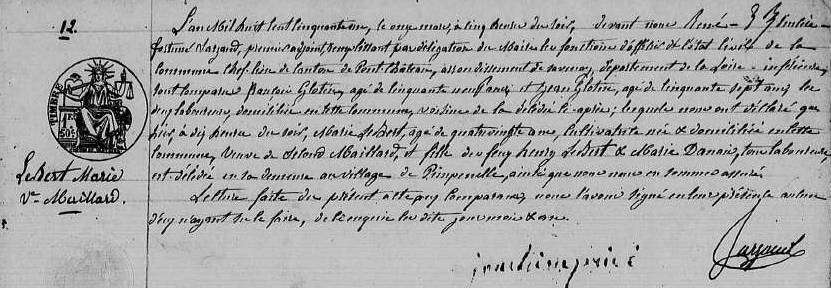 12.
L'an Mil huit cent cinquante un, le onze mars, à cinq heures du soir, devant nous René
fortuné premier adjoint, remplissant par délégation du Maire les fonctions d'officier de l'état civil de la
Commune Chef-lieu de Canton de Pont-Château, arrondissement de Savenay, département de la Loire-inférieure,
sont comparus François Glotin, agé de cinquante neuf ans et Jean Glotin, agé de cinquante sept ans, les
deux laboureurs, domiciliés en cette commune, voisins de la décédée ci-après; lesquels nous ont déclaré que
hier, à dix heures du soir, Marie LeBert, agée de quatrevingts ans, Cultivatrice née & domiciliée en cette
commune, Veuve de Maillard, et fille des feux henry LeBert & Marie tous laboureurs
est décédée en sa demeure au village de ainsi que nous nous en sommes assuré.
Lecture faite du présent acte aux Comparants, nous l'avons signé en leur présence aucun
d'eux n'ayant su le faire, de ce enquis les dits jour mois & an.
TIMBRE
LeBert Marie
Ve Maillard.